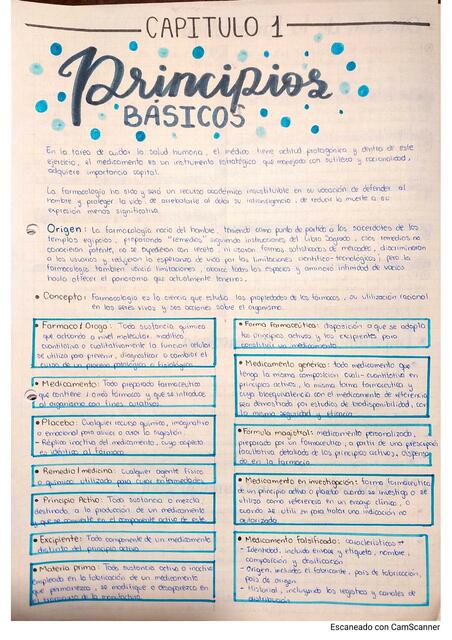 CAPITULO 1
Principios
BÁSICOS
En la tarea de cuidar la salud humana, el médico tiene actitud protagónica y dentro de este
ejercicio, el medicamento es un instrumento estratégico que manejado con sutileza y racionalidad,
adquiere importancia capital.
La farmacología ha sido y será un recurso académico insustituible en su vocación de defender al
hombre y proteger la vida, de arrebatarle al dolor su intransigencia, de reducir la muerte a su
expresión menos significativa.
Origen: La farmacología nació del hombre, teniendo como punto de partida a los sacerdotes de los
templos egipcios, preparando "remedios" siguiendo instrucciones del Libro Sagrado, esos remedios no
conocieran patente, no se expedían con receta, ni usaron formas sofisticadas de mercadeo, discriminaron
a los usuarios y redujeron la esperanza de vida por las limitaciones científico-tecnológicas; pero la
farmacología también venció limitaciones, abarcó todos los espacios y aminoró infinidad de vacíos
hasta ofrecer el panorama que actualmente tenemos.
• Concepto: Farmacología es la ciencia que estudia las propiedades de los fármacos, su utilización racional
en los seres vivos y sus acciones sobre el organismo.
• Farmaco / Droga: Toda sustancia química
que actuando a nivel molecular, modifica
cuantitativa o cualitativamente la función celular
se utiliza para prevenir, diagnosticar o cambiar el
curso de un proceso patológico o fisiológico
• Medicamento: Todo preparado farmacéutico
que contiene 1 o más fármacos y que se introduce
al organismo con fines curativos.
• Placebo: Cualquier recurso químico, imaginativo
o emocional para aliviar o curar la
- Réplica inactiva del medicamento, cuyo aspecto
es idéntico al fármaco
• Remedio / medicina: Cualquier agente físico
o químico utilizado para curar enfermedades
• Principio Activo: Toda sustancia o mezcla
destinada a la producción de un medicamento
y que se convierte en el componente activo de este
• Excipiente: Todo componente de un medicamento
distinto del principio activo
• Materia prima: Toda sustancia activa o inactiva
empleada en la fabricación de un medicamento
que permanezca, se modifique o desaparezca en
el transcurso de la manufactura
• Forma farmacéutica: disposición a que se adapta
los principios activos y los excipientes para
constituir un medicamento
• Medicamento genérico: todo medicamento que
tenga la misma composición cuali-cuantitativa en
principios activos, la misma forma farmacéutica y
cuya bioequivalencia con el medicamento de referencia
sea demostrado por estudios de biodisponibilidad, con
la misma seguridad y eficacia
• Fórmula magistral: medicamento personalizado,
preparado por un farmacéutico, a partir de una prescripción
facultativa detallada de los principios activos, dispensado
en la farmacia
• Medicamento en investigación: forma farmacéutica
de un principio activo o placebo cuando se investiga o se
utiliza como referencia en un ensayo clínico, o
cuando se utiliza para tratar una indicación no
autorizada
• Medicamento falsificado: características
- Identidad, incluido envase y etiqueta, nombre,
composición y dosificación
- Origen, incluidos el fabricante, país de fabricación,
país de origen
- Historial, incluyendo los registros y canales de
distribución
Escaneado con CamScanner